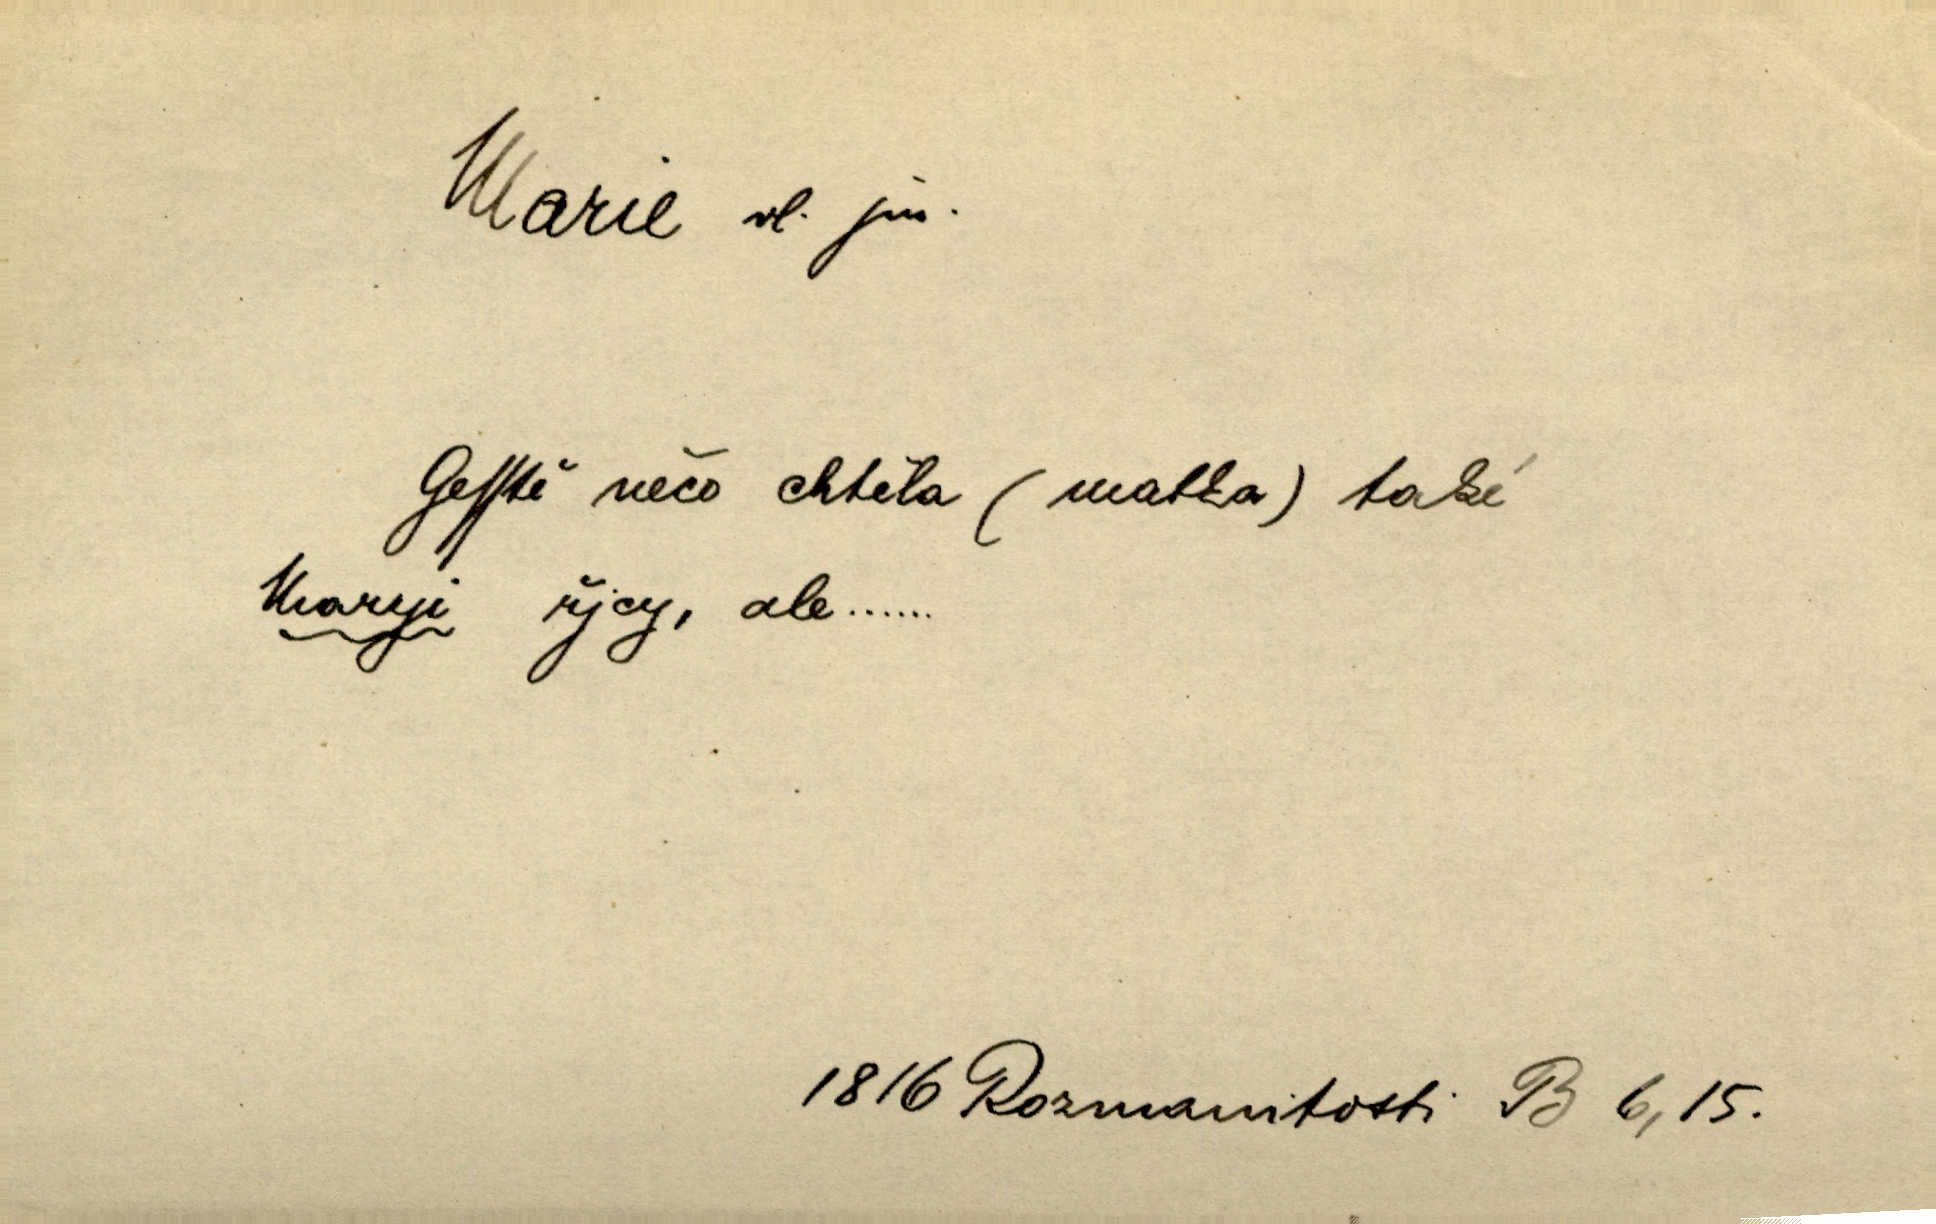 Marie vl. jm.
Gessstě něco chtěla (matka) také
Maryi řjcy, ale......
1816 Rozmanitosti B 6, 15.